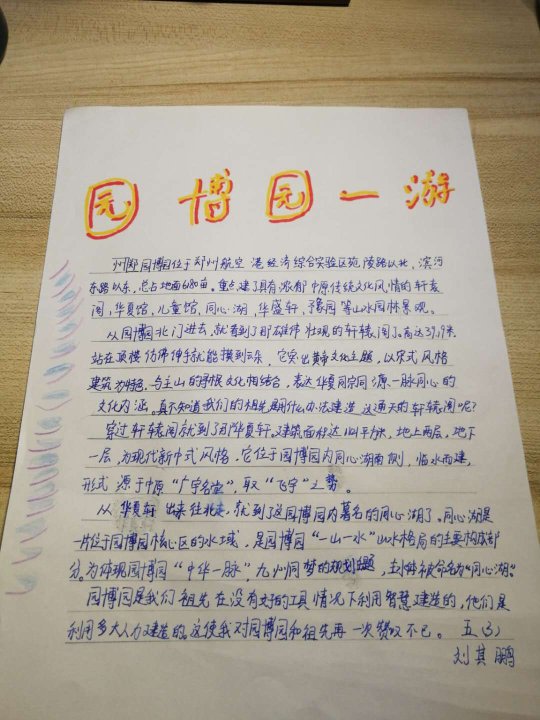 园博园一游
州郑园博园位于郑州航空港经济综合实验区苑陵路以北,滨河
东路以东,总占地面积1680亩。重点建了具有浓郁中原传统文化风情的轩辕
阁,华夏馆,儿童馆,同心湖,华盛轩,豫园等山水园林景观。
从园博园北门进去,就看到了那雄伟壮观的轩辕阁了。高达39.9米
站在顶楼仿佛伸手就能摸到云朵,它突出黄帝文化主题,以宋式风格
建筑为特色,与主山的寻根文化相结合,表达华夏同宗同源一脉同心的
文化内涵。真不知道我们的祖先是用什么办法建造这通天的轩辕阁呢?
穿过轩辕阁就到了华夏轩,建筑面积达平方米,地上两层,地下
一层,为现代新中式风格,它位于园博园内同心湖南侧,临水而建,
形式源于中原“广宇名堂”,取“飞宇”之势。
从华夏轩出来往北走,就到了这园博园内著名的同心湖了。同心湖是
一片位于园博园核心区的水域,是园博园“一山一水”山水格局的主要构成部
分。为体现园博园“中华一脉,九州同梦的规划主题,主水体被命名为“同心湖”。
园博园是我们祖先在没有好的工具情况下利用智慧建造的,他们是
利用多大人力建造的。这使我对园博园和祖先再一次赞叹不已。 五(3)
刘其鹏